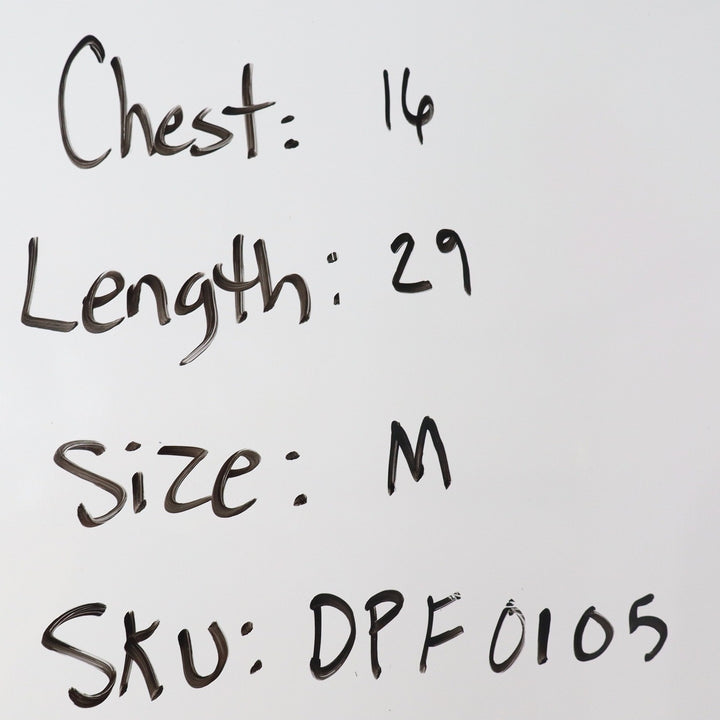 Chest: 16
Length: 29
Size: M
Sku: DPF0105